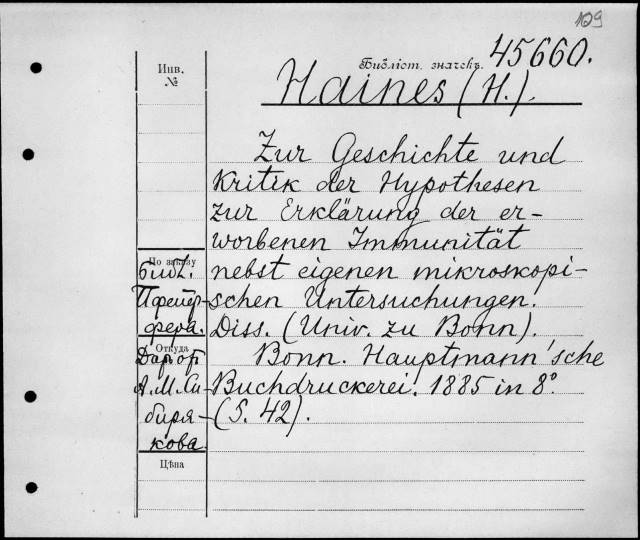 109
Библіот. значекъ. 45660.
Инв.
№
Haines (H.).
Zur Geschichte und
Kritik der Hypothesen
zur Erklärung der er-
worbenen Immunität
nebst eigenen mikroskopi-
schen Untersuchungen.
Diss. (Univ. zu Bonn).
Bonn. Hauptmann'sche
Buchdruckerei. 1885 in 8°.
(S. 42).
По заказу
Библ.
Пфейф-
фера.
Откуда
Дар от
А. М. Си-
биря-
кова
Цѣна